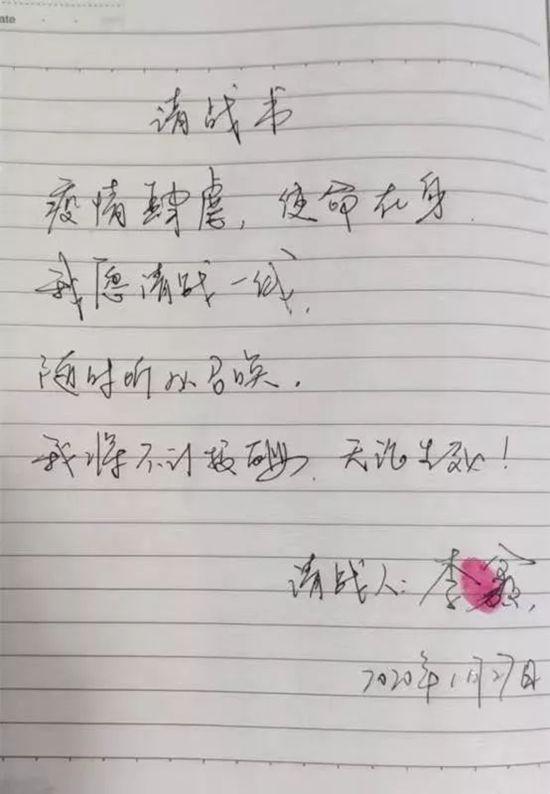 ate
请战书
疫情肆虐，使命在身．
我愿请战一线，
随时听从召唤．
我将不计报酬，无论生死！
请战人：李
2020年1月27日